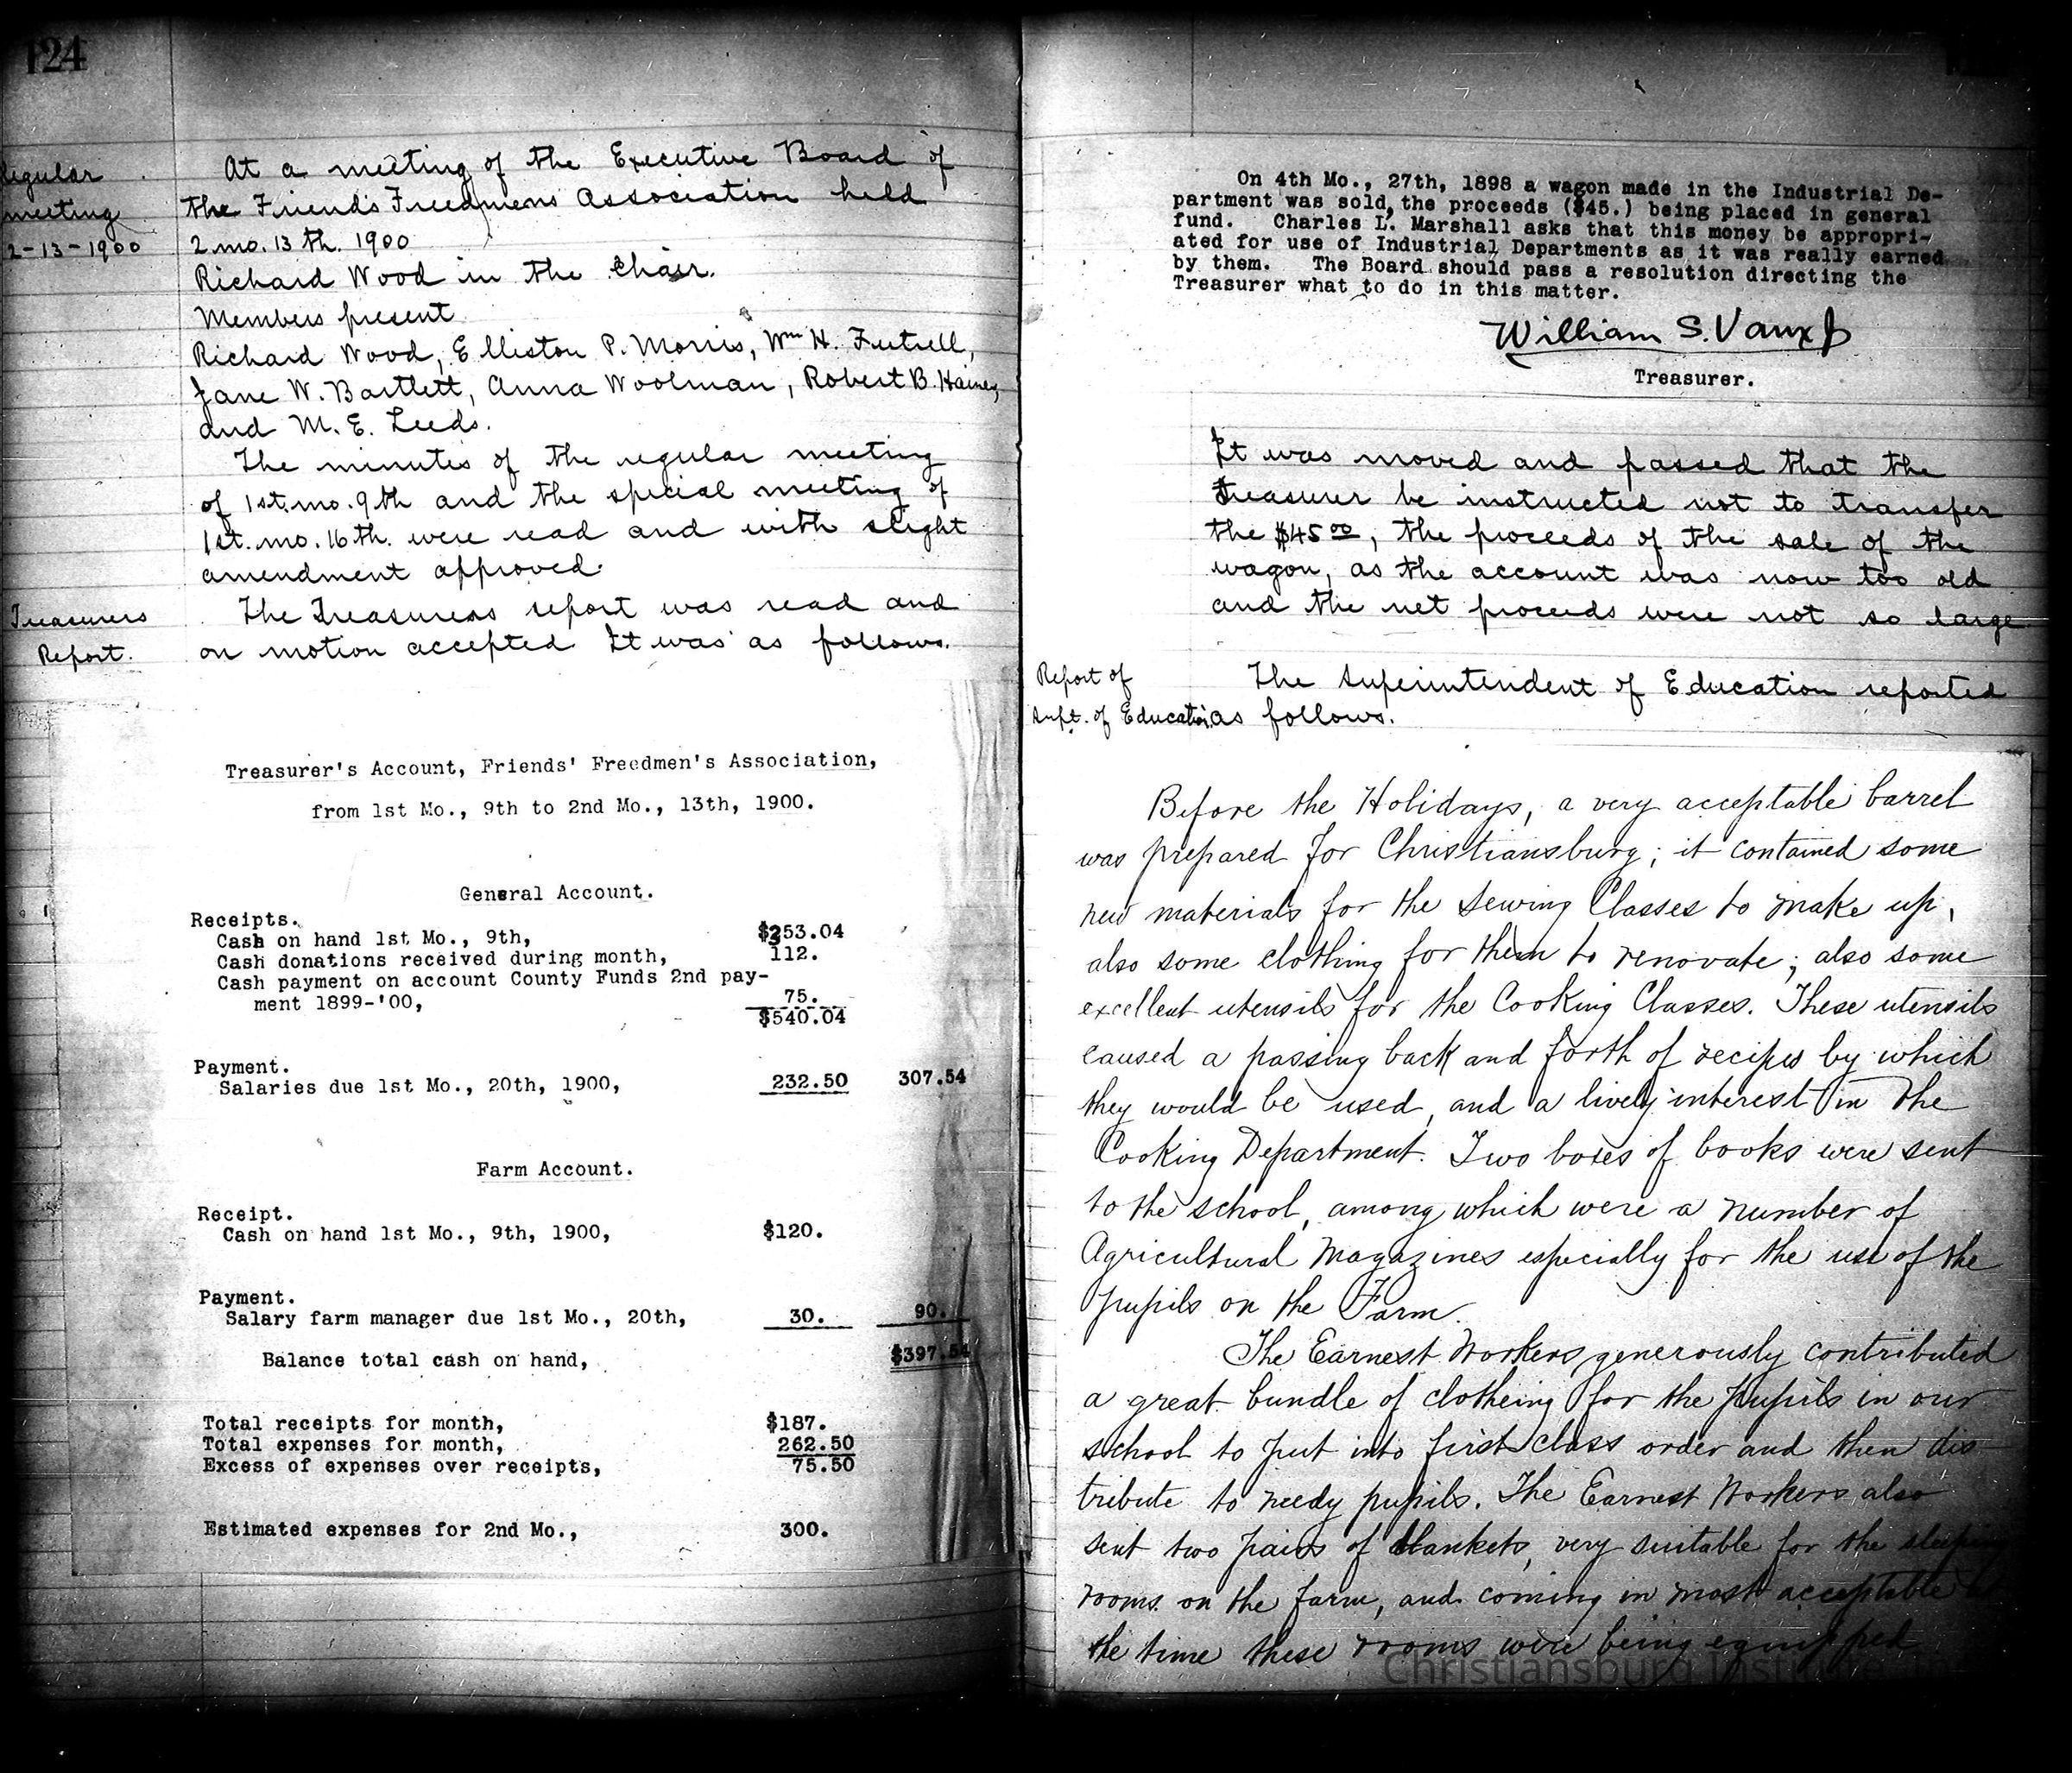 124
Regular
meeting
2-13-1900
At a meeting of the Executive Board of
the Friend's Freedmens Association held
2 mo. 13 th. 1900
Richard Wood in the Chair.
Members present
Richard Wood, Elliston P. Morris, Wm H. Futrell,
Jane W. Bartlett, Anna Woolman, Robert B. Haines,
and M. E. Leeds.
The minutes of the regular meeting
of 1st. mo. 9th and the special meeting of
1st. mo. 16th. were read and with slight
amendment approved.
Treasurers
Report.
The Treasurers report was read and
on motion accepted It was as follows.
Treasurer's Account, Friends' Freedmen's Association,
from 1st Mo., 9th to 2nd Mo., 13th, 1900.
General Account.
Receipts.
Cash on hand 1st Mo., 9th, $353.04
Cash donations received during month, 112.
Cash payment on account County Funds 2nd pay-
ment 1899-'00, 75.
$540.04
Payment.
Salaries due 1st Mo., 20th, 1900, 232.50 307.54
Farm Account.
Receipt.
Cash on hand 1st Mo., 9th, 1900, $120.
Payment.
Salary farm manager due 1st Mo., 20th, 30. 90.
Balance total cash on hand, $397.54
Total receipts for month, $187.
Total expenses for month, 262.50
Excess of expenses over receipts, 75.50
Estimated expenses for 2nd Mo., 300.
On 4th Mo., 27th, 1898 a wagon made in the Industrial De-
partment was sold, the proceeds ($45.) being placed in general
fund. Charles L. Marshall asks that this money be appropri-
ated for use of Industrial Departments as it was really earned
by them. The Board should pass a resolution directing the
Treasurer what to do in this matter.
William S. Vaux Jr
Treasurer.
It was moved and passed that the
Treasurer be instructed not to transfer
the $45 00, the proceeds of the sale of the
wagon, as the account was now too old
and the net proceeds were not so large
Report of
Supt. of Education
The Superintendent of Education reported
as follows.
Before the Holidays, a very acceptable barrel
was prepared for Christiansburg; it contained some
new materials for the Sewing Classes to make up,
also some clothing for them to renovate; also some
excellent utensils for the Cooking Classes. These utensils
caused a passing back and forth of recipes by which
they would be used, and a lively interest in the
Cooking Department. Two boxes of books were sent
to the school, among which were a number of
Agricultural Magazines especially for the use of the
pupils on the Farm.
The Earnest Workers generously contributed
a great bundle of clotheing for the pupils in our
school to put into first class order and then dis-
tribute to needy pupils. The Earnest Workers also
sent two pairs of blankets, very suitable for the sleeping
rooms on the farm, and coming in most acceptable
the time these rooms were being equipped
Christiansburg Institute